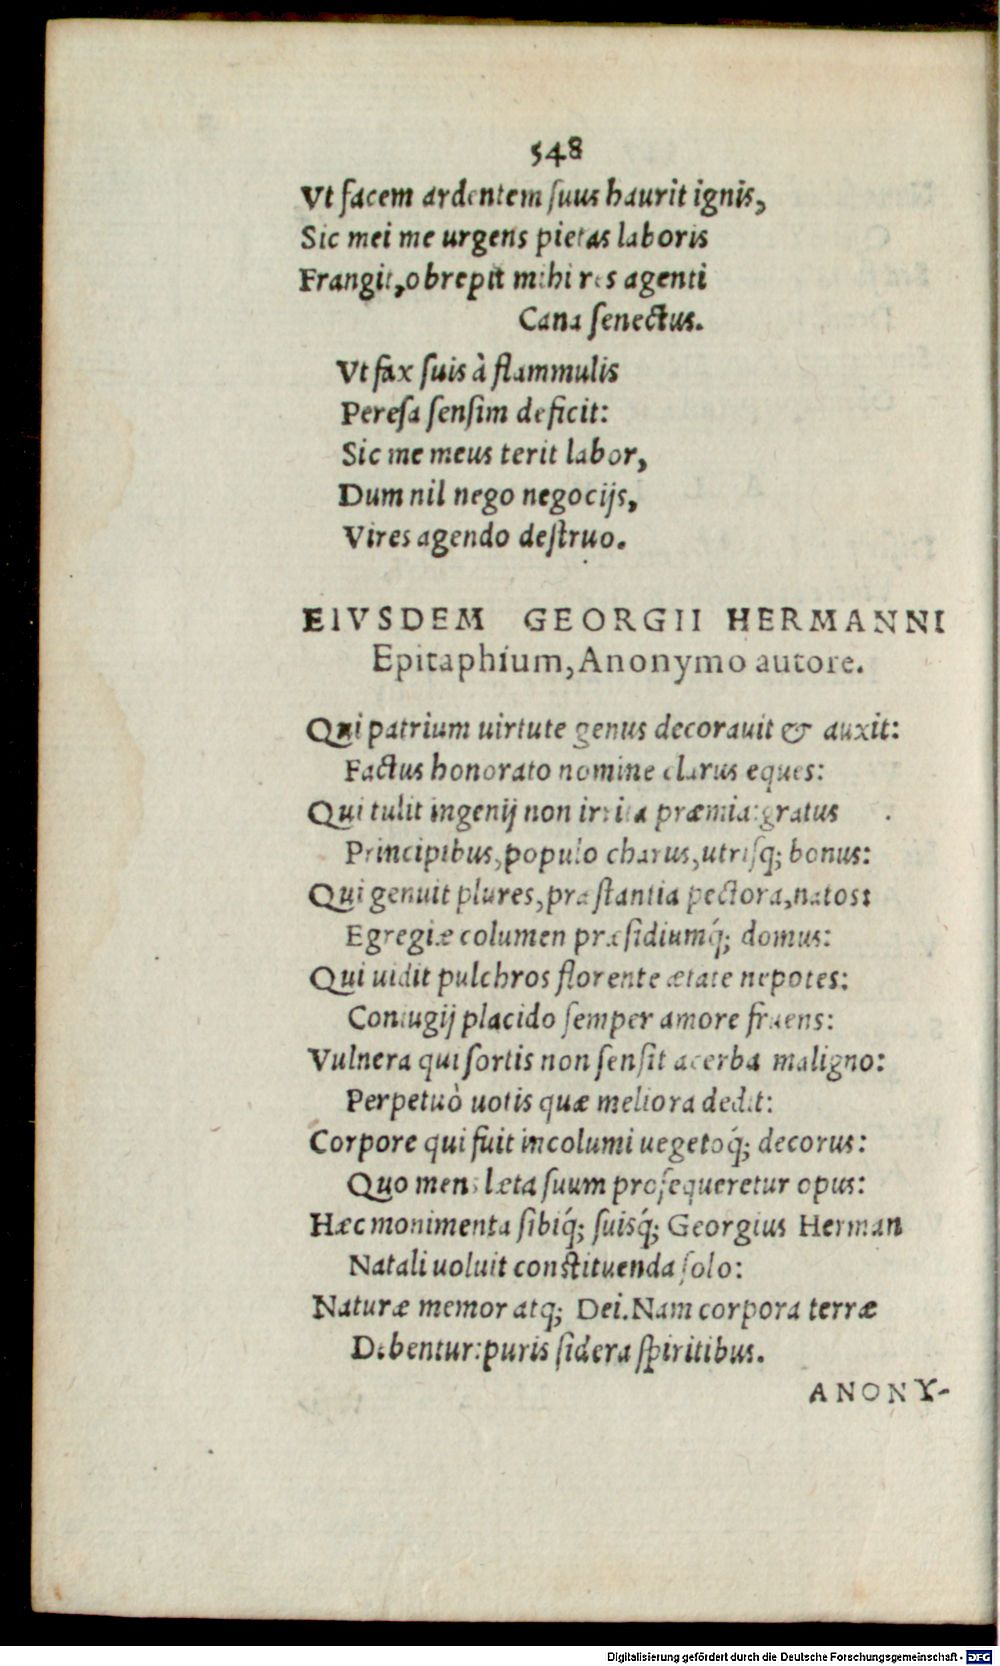 548
Vt facem ardentem ſuus haurit ignis,
Sic mei me urgens pietas laboris
Frangit, obrepit mihi res agenti
Cana ſenectus.
Vt fax ſuis à flammulis
Pereſa ſenſim deficit:
Sic me meus terit labor,
Dum nil nego negocijs,
Vires agendo deſtruo.
EIVSDEM GEORGII HERMANNI
Epitaphium, Anonymo autore.
Qui patrium uirtute genus decorauit & auxit:
Factus honorato nomine clarus eques:
Qui tulit ingenij non irrita præmia: gratus
Principibus, populo charus, utriſq; bonus:
Qui genuit plures, præſtantia pectora, natos:
Egregiæ columen præſidiumq́; domus:
Qui uidit pulchros florente ætate nepotes:
Coniugij placido ſemper amore fruens:
Vulnera qui ſortis non ſenſit acerba maligno:
Perpetuò uotis quæ meliora dedit:
Corpore qui fuit incolumi uegetoq́; decorus:
Quo mens læta ſuum proſequeretur opus:
Hæc monimenta ſibiq́; ſuisq́; Georgius Herman
Natali uoluit conſtituenda ſolo:
Naturæ memor atq; Dei. Nam corpora terræ
Debentur: puris ſidera ſpiritibus.
ANONY-
Digitalisierung gefördert durch die Deutsche Forschungsgemeinschaft - DFG